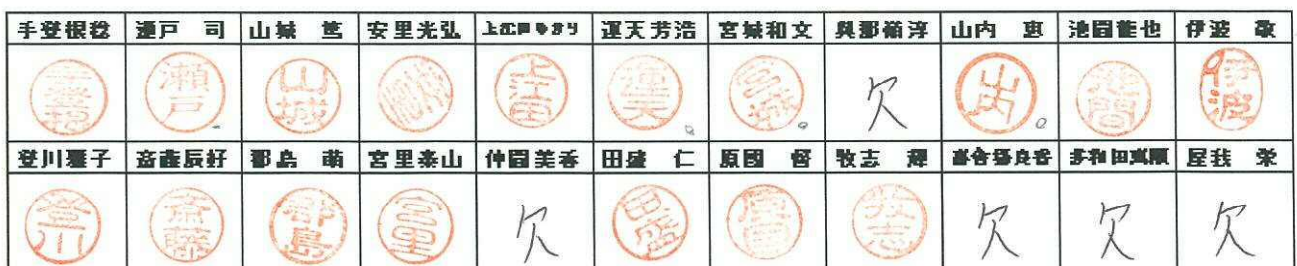 手登根稔 瀬戸 司 山城 篤 安里光弘 上江田ゆかり 運天芳浩 宮城和文 與那嶺淳 山内 恵 池間龍也 伊波 敬
手登根 瀬戸 山城 上江田 運天 宮城 欠 山内 池間 伊波
登川雅子 斎藤辰好 都島 萌 宮里泰山 仲間美香 田盛 仁 原國 督 牧志 輝 喜舎場良香 多和田真順 屋我 栄
登川 斎藤 都島 宮里 欠 田盛 原国 牧志 欠 欠 欠